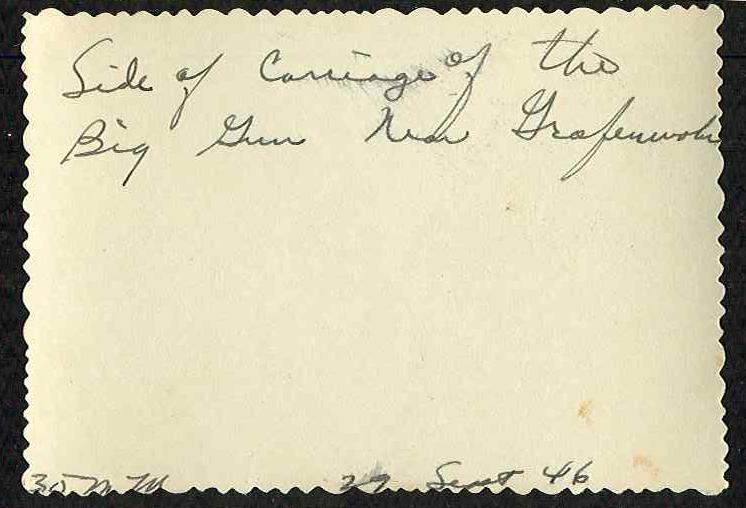 Side of Carriage of the
Big Gun Near Grafenwohr
35 MM 29 Sept 46